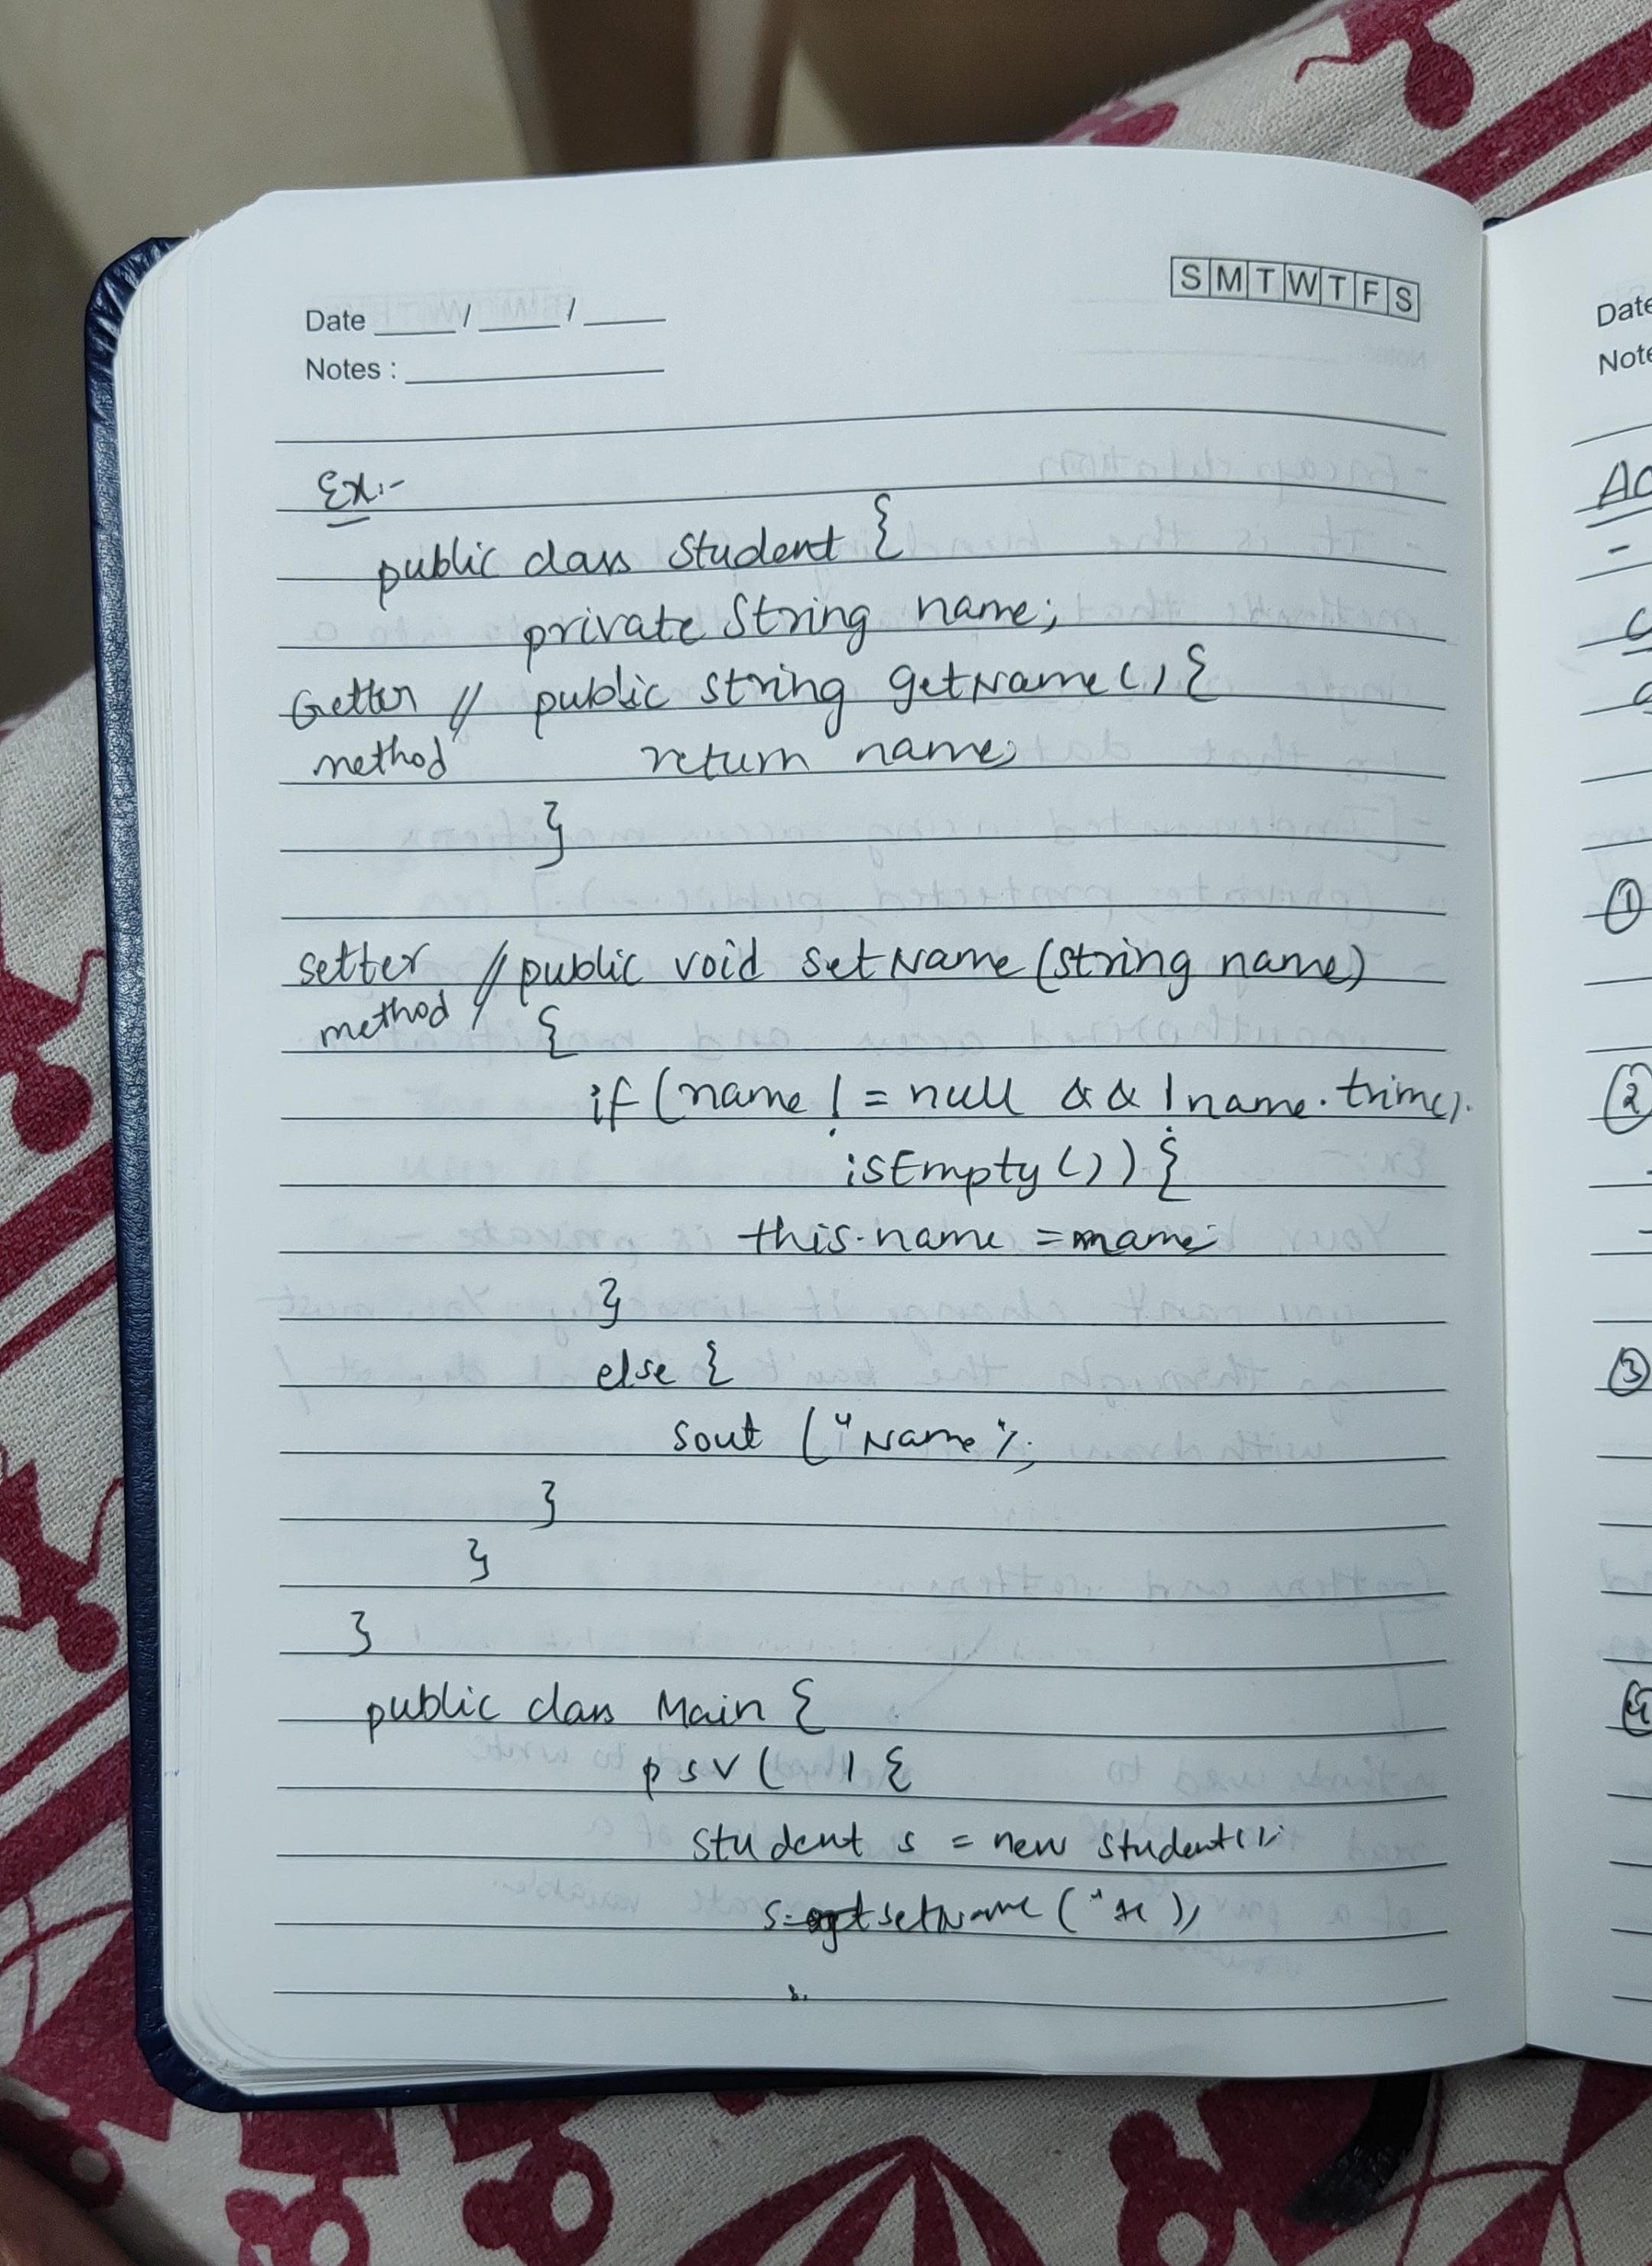 S M T W T F S
Date ____ / ____ / ____
Notes : ____
Ex:-
public class Student {
private String name;
Getter // public string getName() {
method return name;
}
setter // public void setName (string name)
method {
if (name != null && !name.trim().
isEmpty()) {
this.name = name;
}
else {
sout ("Name");
}
}
}
public class Main {
psv ( ) {
student s = new student();
s. setName ("
Date
Note
①
②
③